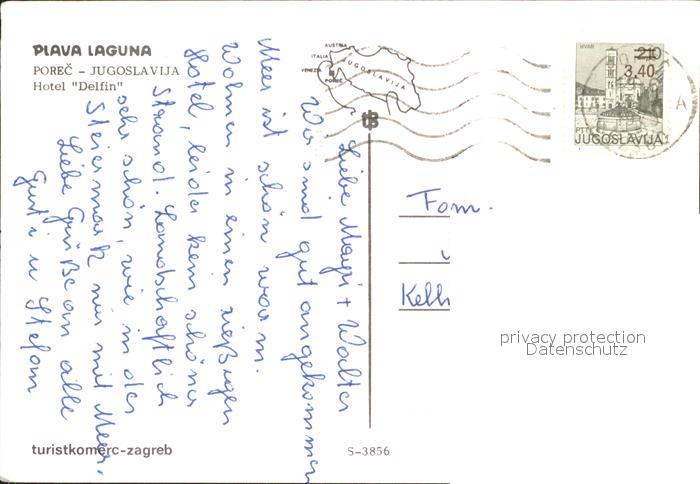 PLAVA LAGUNA
POREČ - JUGOSLAVIJA
Hotel "Delfin"
AUSTRIA
ITALIA
VENEZIA
POREČ
JUGOSLAVIJA
HVAR
2.10
3,40
PTT
JUGOSLAVIJA
A
Liebe Mayri + Walter
Wir sind gut angekommen
Meer ist schön warm.
Wohnen in einen rießigen
Hotel, leider kein schöner
Strand. Landschaftlich
sehr schön, wie in der
Steiermark nur mit Meer.
Liebe Grüße an alle
Gusti u Stefan
Fam.
Kelh
privacy protection
Datenschutz
turistkomerc-zagreb
S-3856